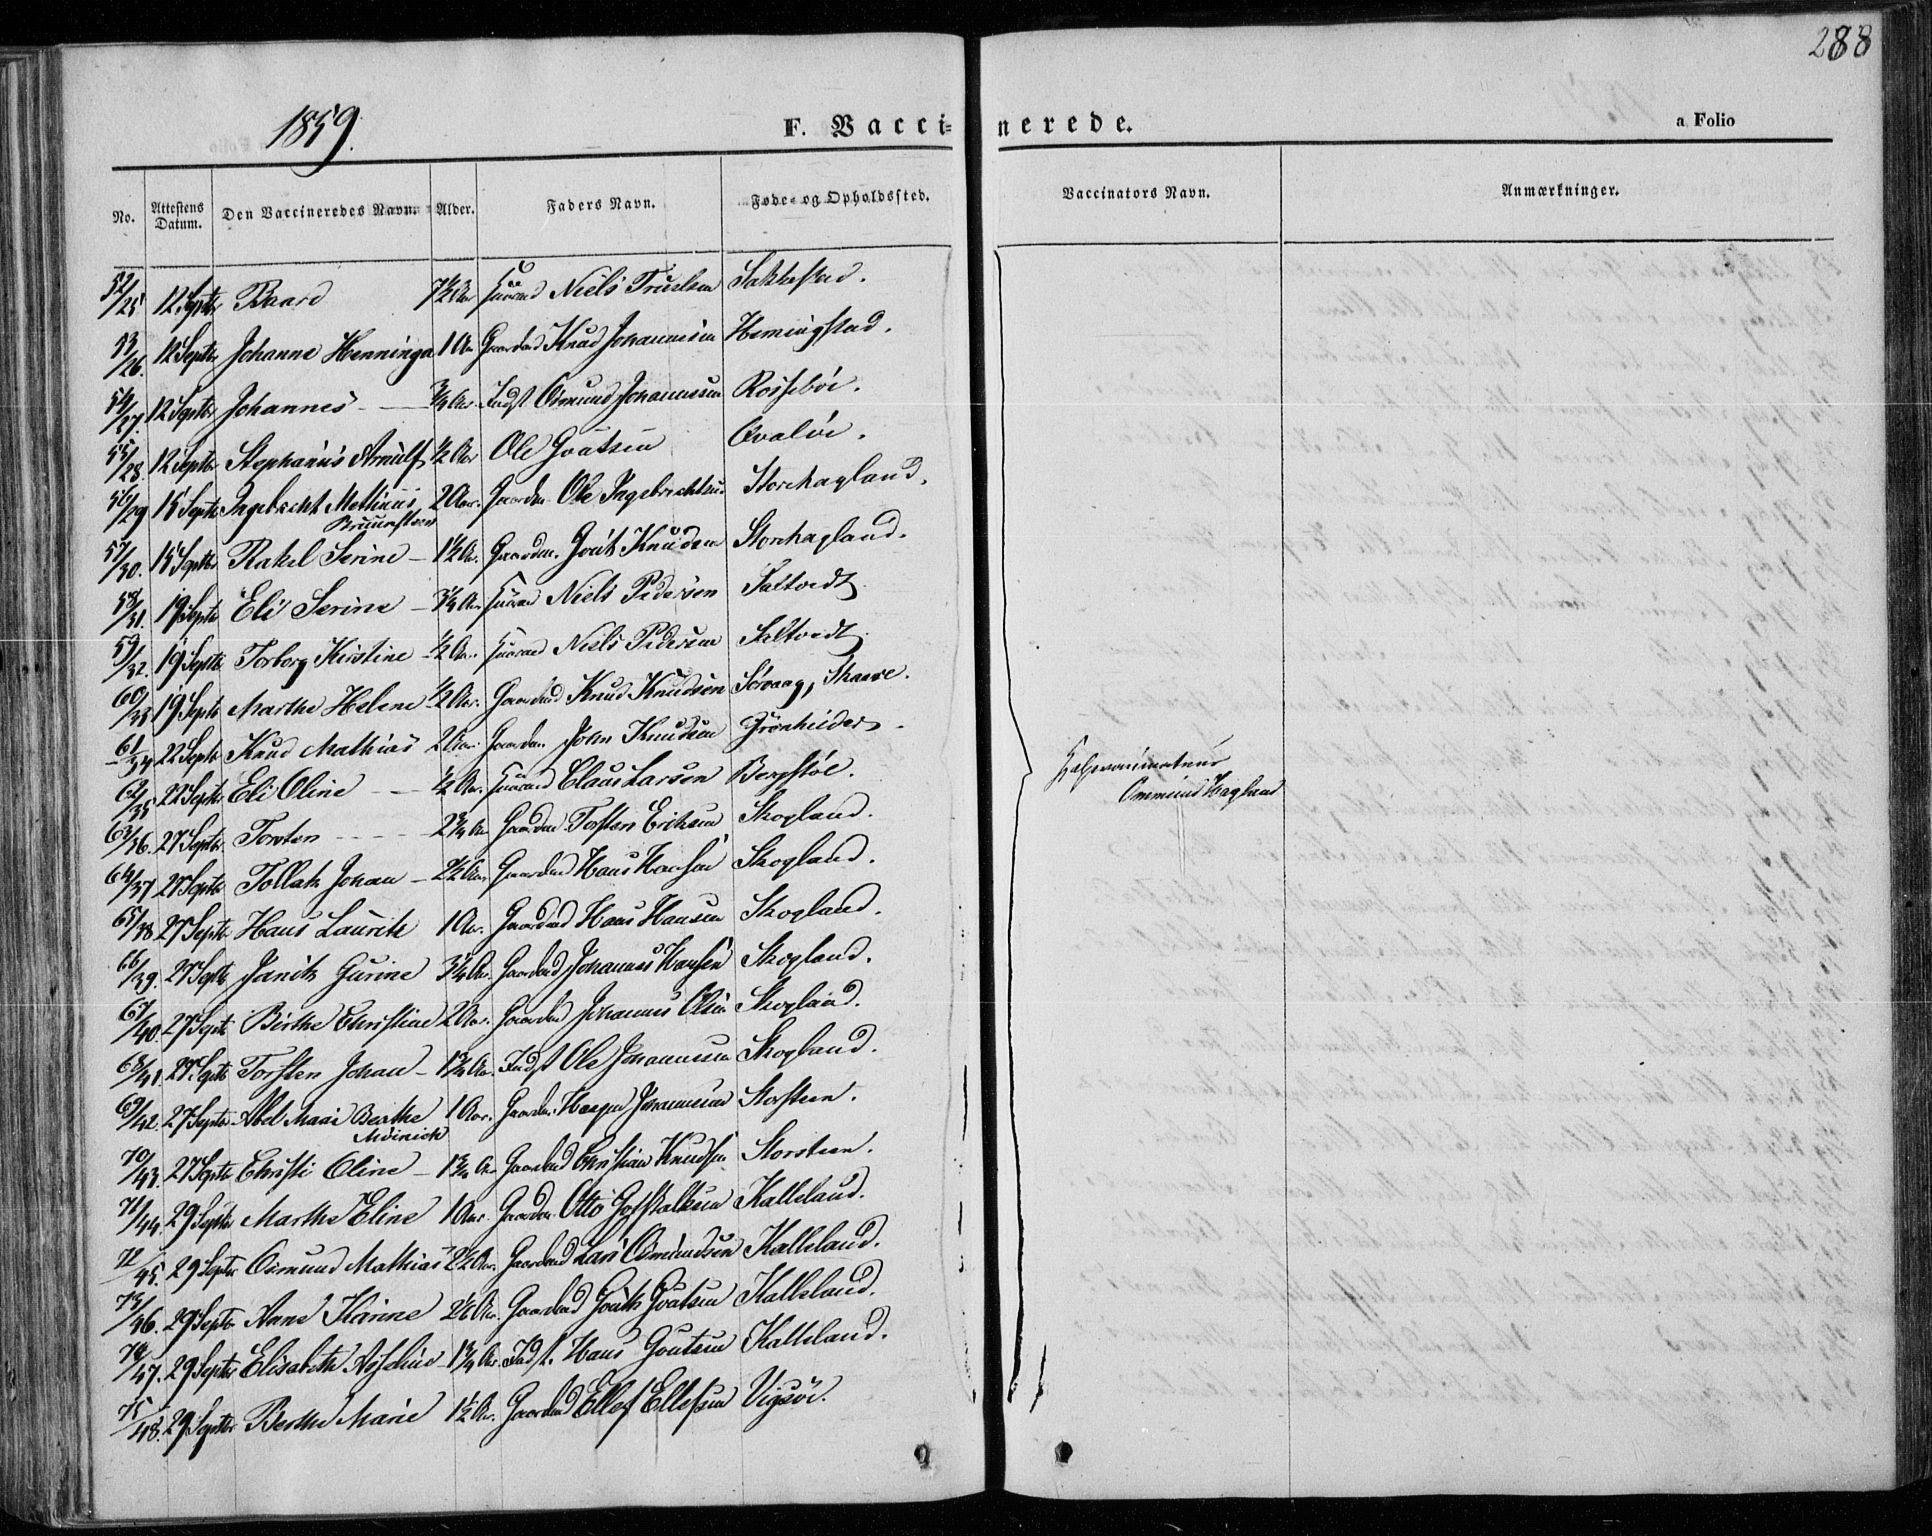 288
1859.
F. Vaccinerede.
a Folio
No. Attestens Datum. Den Vaccineredes Navn. Alder. Faders Navn. Føde- og Opholdssted. Vaccinators Navn. Anmærkninger.
52/25 12 Septbr Baard 7½ Aar Niels Truelsen Sakkestad.
53/26. 12 Septbr Johanne Henninga 1 Aar Gaardmd Knud Johannesen Hemingstad.
54/27. 12 Septbr Johannes — ¾ Aar. Indst Osmund Johannessen Rossebøe.
55/28. 12 Septbr Stephanus Arnulf ½ Aar Ole Goutsen Qvaløe.
56/29 15 Septb Ingebrecht Methinus 2 Aar. Gaardm. Ole Ingebrechtsen Storehagland.
57/30. 15 Septbr Rakel Serine — 1½ Ar. Gaardm. Gout Knudsen Storehagland.
58/31. 19 Septb Eli Serine — ¾ Aar Niels Pedersen Saltvedt
59/32. 19 Septb Torborg Kirstine — ½ Aar. Niels Pedersen Saltvedt
60/33 19 Septb Marthe Helene ½ Aar. Gaardmd Knud Knudsen Sørvaag, Skaare.
61/34 22 Septb Knud Mathias 2 Aar. Gaardm. John Knudsen Grønheider
62/35 22 Septb Eli Oline — ½ Aar. Claus Larsen Bergstøl.
63/36. 27 Septbr Torsten 2¾ Ar Gaardm. Torsten Eriksen Skogland.
64/37 27 Septb Tollak Johan — 2½ Aar. Gaardmd Hans Hansen Skogland.
65/38. 27 Septb Hans Lauritz 1 Ar. Gaardmd Hans Hansen Skogland.
66/39. 27 Septb Janik Gurine 3¼ Ar. Gaardmd Johannes Hansen Skogland.
67/40. 27 Septb Birthe Christine 2 Aar. Gaardmd Johannes Olsen Skogland.
68/41. 27 Septb Torsten Johan — 1¾ Ar. Indst Ole Johannessen Skogland.
69/42. 27 Septbr Abel Maai Berthe 1 Aar. Gaardm. Johannessen Storsteen.
70/43. 27 Septb Christi Oline — 1¾ Ar Gaardmd Christian Knudsen Storsteen.
71/44. 29 Septbr Marthe Eline 1 Aar. Gaardm. Otto Gotskalksen Kalleland.
72/45. 29 Septbr Osmund Mathias 2½ Ar. Gaardmd Lars Osmundsen Kalleland.
73/46. 29 Septbr Anne Karine Gaardmd Gout Goutsen Kalleland.
74/47. 29 Septbr Elisabeth 1¾ Ar. Indst. Hans Goutsen Kalleland.
75/48. 29 Septbr Berthe Marie 1½ Ar. Gaardmd Ellef Ellefsen Vigsøe.
Hjelpevaccinateur
Ommund Hagland